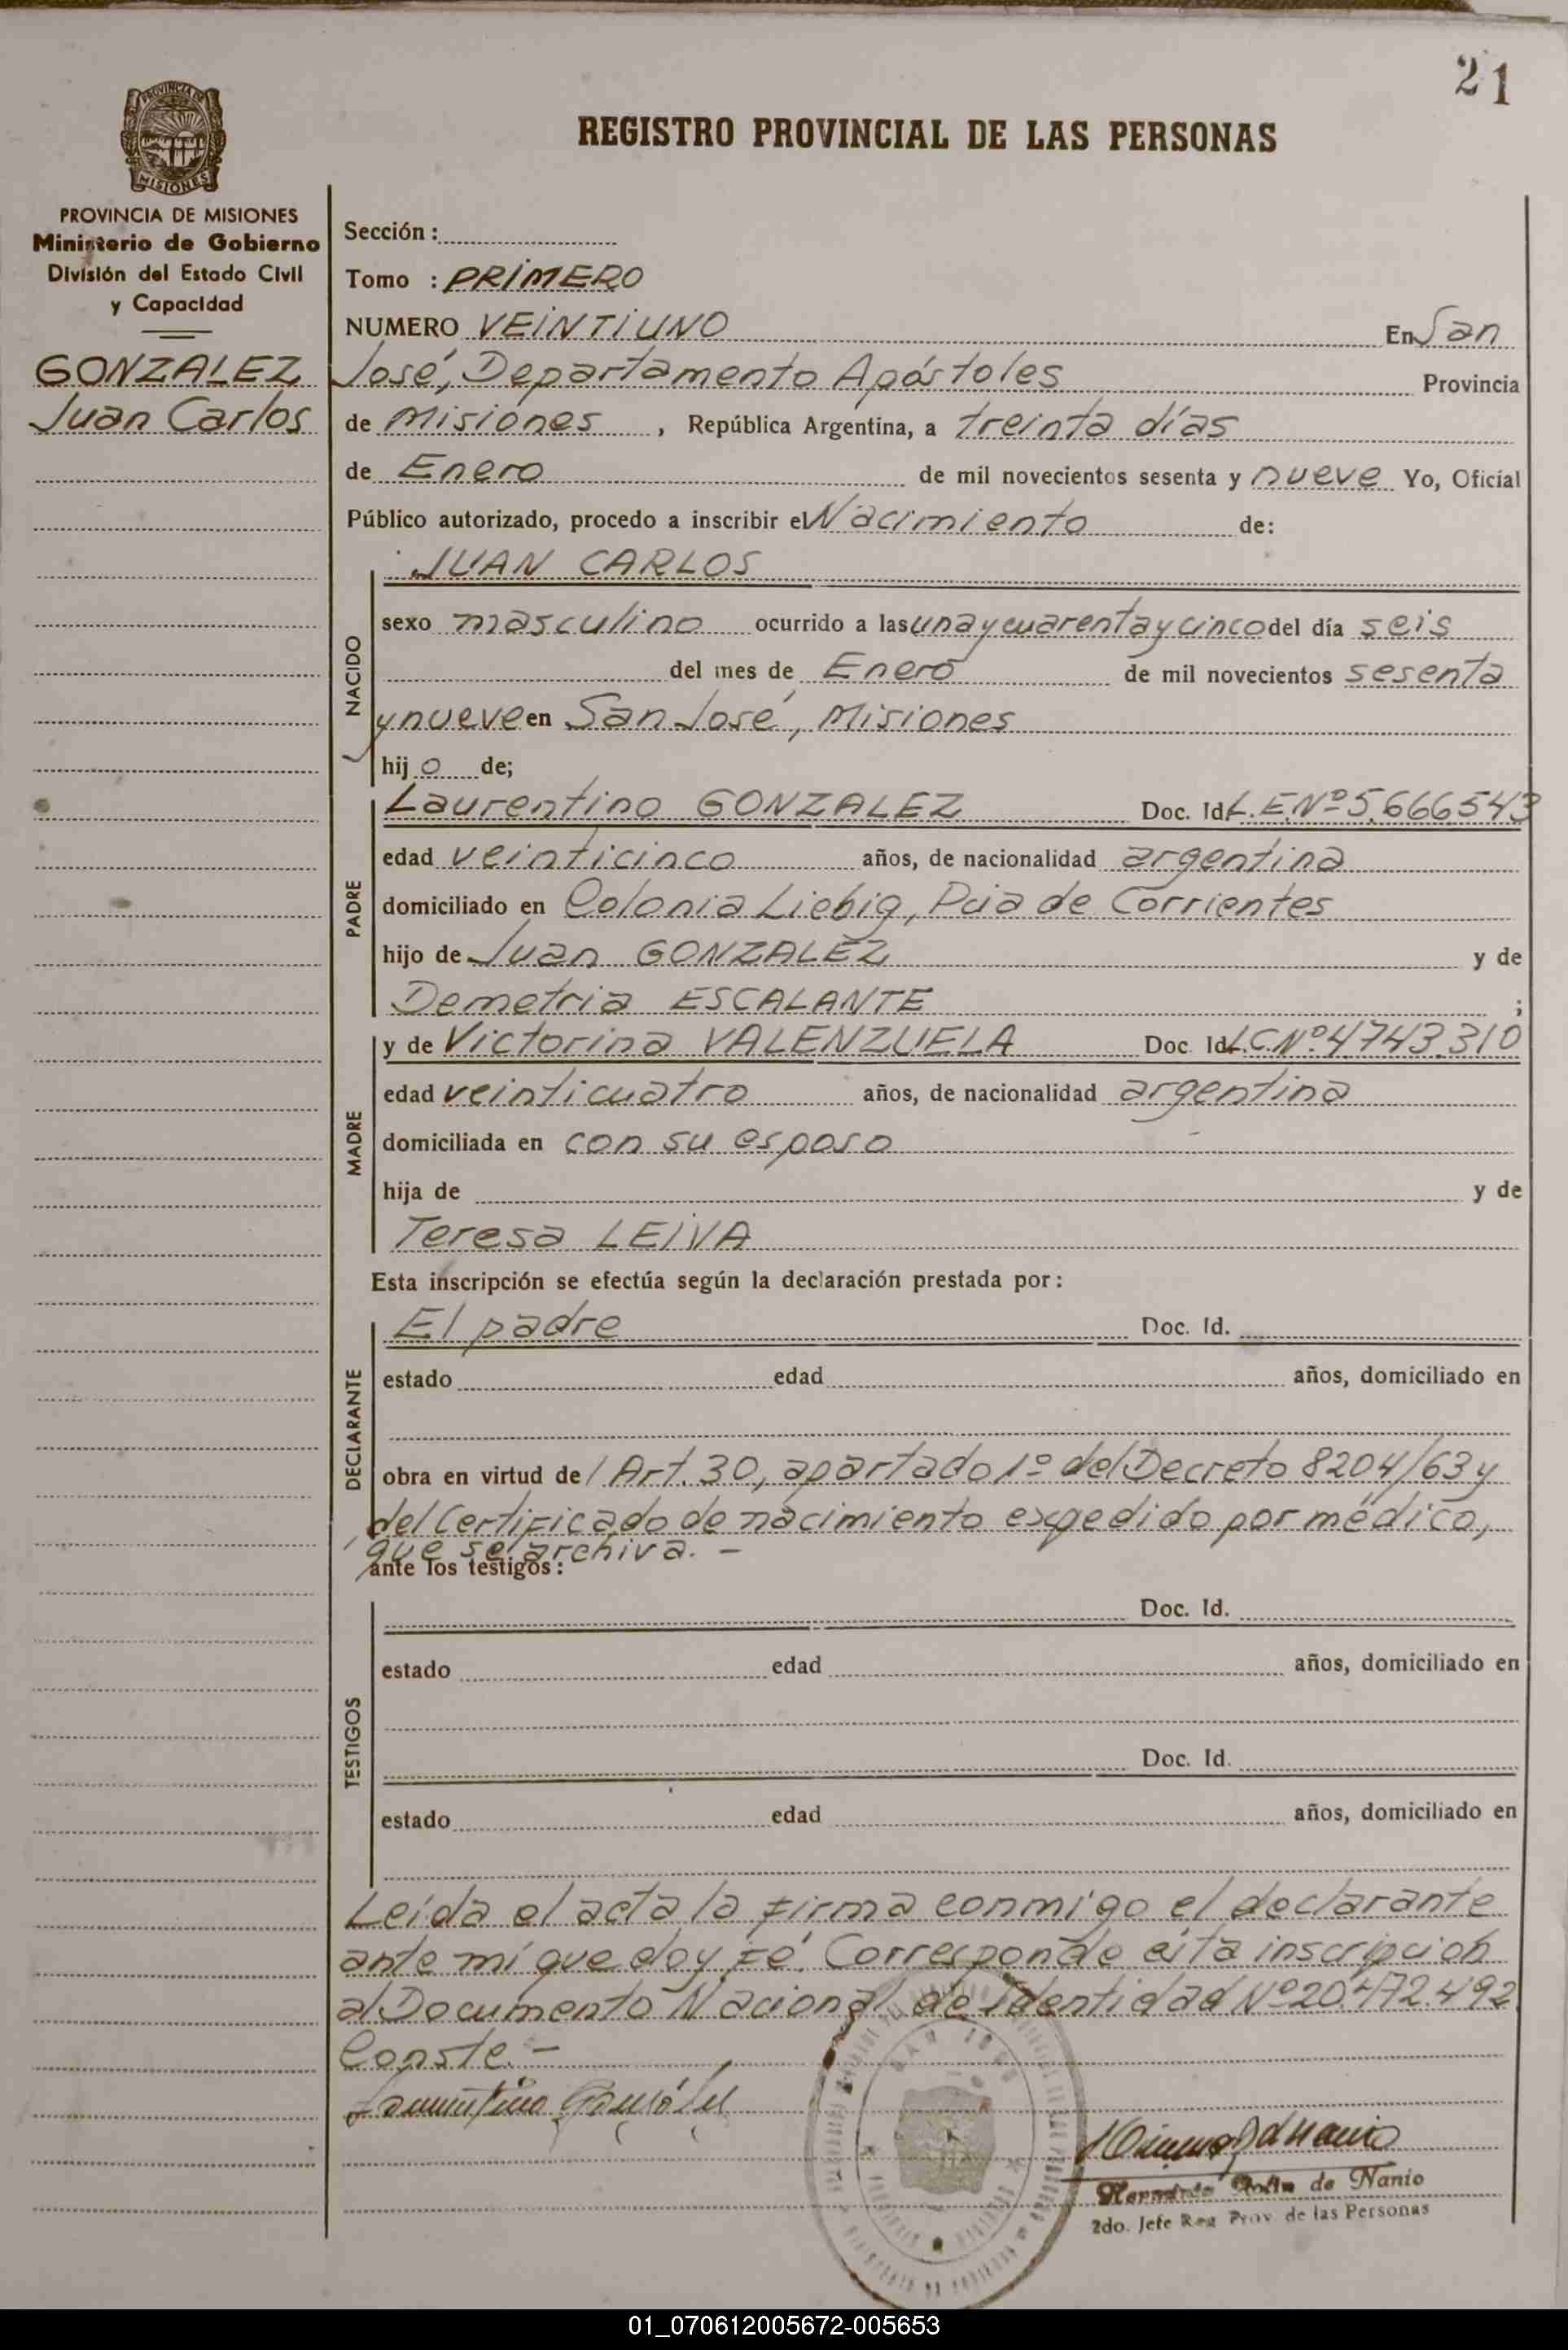 21
REGISTRO PROVINCIAL DE LAS PERSONAS
PROVINCIA DE
MISIONES
PROVINCIA DE MISIONES
Ministerio de Gobierno
División del Estado Civil
y Capacidad
GONZALEZ
Juan Carlos
Sección :
Tomo : PRIMERO
NUMERO VEINTIUNO En San
José, Departamento Apóstoles Provincia
de Misiones , República Argentina, a treinta días
de Enero de mil novecientos sesenta y nueve Yo, Oficial
Público autorizado, procedo a inscribir el Nacimiento de:
NACIDO
JUAN CARLOS
sexo masculino ocurrido a las una y cuarenta y cinco del día seis
del mes de Enero de mil novecientos sesenta
y nueve en San José, Misiones
hij o de;
PADRE
Laurentino GONZALEZ Doc. Id. L.E.Nº 5.666543
edad veinticinco años, de nacionalidad argentina
domiciliado en Colonia Liebig, Pcia de Corrientes
hijo de Juan GONZALEZ y de
Demetria ESCALANTE ;
MADRE
y de Victorina VALENZUELA Doc. Id. L.C.Nº 4743.310
edad veinticuatro años, de nacionalidad argentina
domiciliada en con su esposo
hija de y de
Teresa LEIVA
Esta inscripción se efectúa según la declaración prestada por :
DECLARANTE
El padre Doc. Id.
estado edad años, domiciliado en
obra en virtud de l Art. 30, apartado 1º del Decreto 8204/63 y
del Certificado de nacimiento expedido por médico,
que se archiva. -
ante los testigos :
TESTIGOS
Doc. Id.
estado edad años, domiciliado en
Doc. Id.
estado edad años, domiciliado en
Leída el acta la firma conmigo el declarante
ante mí que doy fé. Corresponde esta inscripción
al Documento Nacional de Identidad Nº 20.472.492
Conste. -
Laurentino González
de Nanio
2do. Jefe Reg Prov. de las Personas
01_070612005672-005653